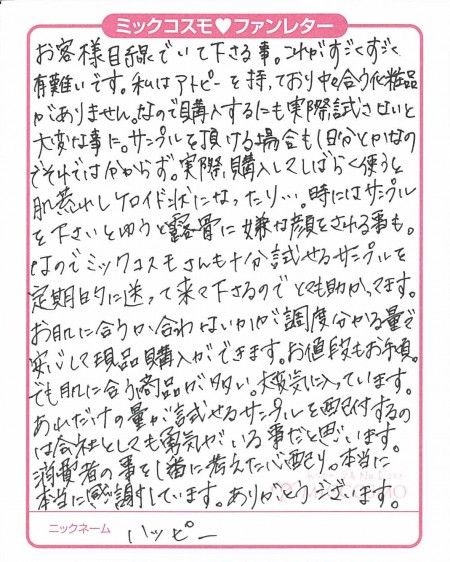 ミックコスモ♥ファンレター
お客様目線でいて下さる事。これがすごくすごく
有難いです。私はアトピーを持っており中々合う化粧品
がありません。なので購入するにも実際試さないと
大変な事に。サンプルを頂ける場合も1日分とかなの
でそれでは分からず。実際購入してしばらく使うと
肌荒れしケロイド状になったり…。時にはサンプル
を下さいとゆうと露骨に嫌な顔をされる事も。
なのでミックコスモさんも十分試せるサンプルを
定期的に送って来て下さるのでとても助かってます。
お肌に合うか合わないかが調度分かる量で
安心して現品購入ができます。お値段もお手頃。
でも肌に合う商品が多い。大変気に入っています。
あれだけの量が試せるサンプルを配付するの
は会社としても勇気がいる事だと思います。
消費者の事を1番に考えた心配り。本当に
本当に感謝しています。ありがとうございます。
ニックネーム
ハッピー